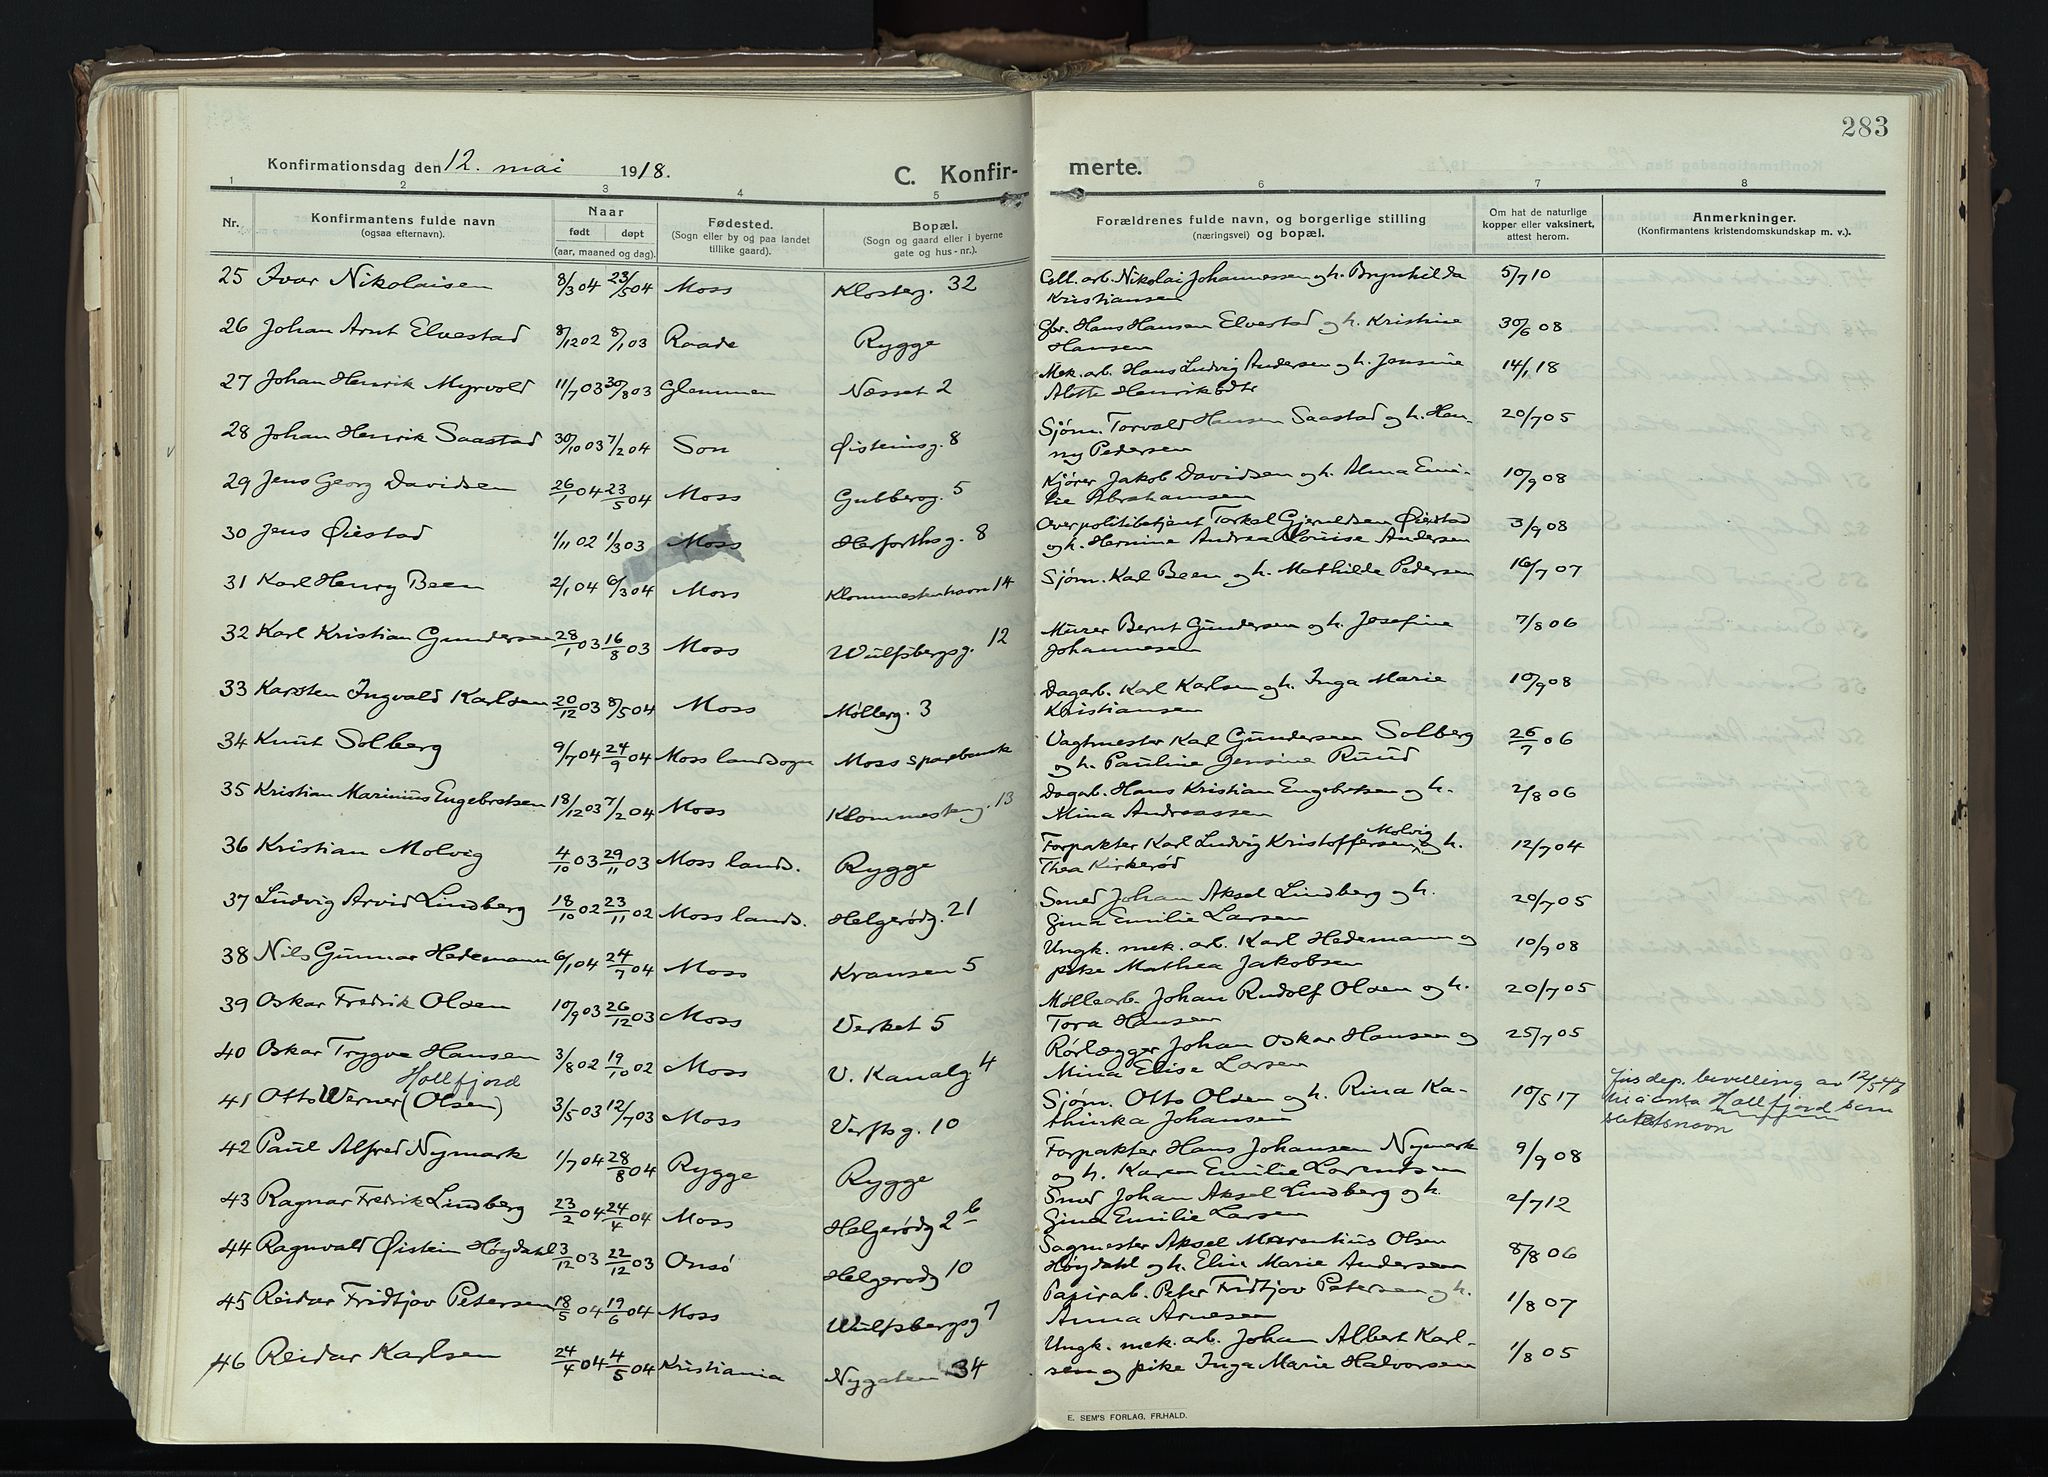 283
Konfirmationsdag den 12. mai 1918.
C. Konfir-
merte.
1 2 3 4 5 6 7 8
Nr.
Konfirmantens fulde navn
(ogsaa efternavn).
Naar
født døpt
(aar, maaned og dag).
Fødested.
(Sogn eller by og paa landet
tillike gaard).
Bopæl.
(Sogn og gaard eller i byerne
gate og hus-nr.).
Forældrenes fulde navn, og borgerlige stilling
(næringsvei) og bopæl.
Om hat de naturlige
kopper eller vaksinert,
attest herom.
Anmerkninger.
(Konfirmantens kristendomskundskap m. v.).
25 Ivar Nikolaisen 8/3 04 23/5 04 Moss Klosterg. 32 Cell. arb. Nikolai Johannessen og h. Brynhilda 5/7 10
Kristiansen
26 Johan Arnt Elvestad 8/12 02 8/1 03 Raade Rygge Gbr. Hans Hansen Elvestad og h. Kristine 30/6 08
Hansen
27 Johan Henrik Myrvold 11/7 03 30/8 03 Glemmen Næsset 2 Mek. arb. Hans Ludvig Andersen og h. Jensine 14/1 18
Alette Henriksdtr
28 Johan Henrik Saastad 30/10 03 7/2 04 Son Øisteinsg. 8 Sjøm. Torvald Hansen Saastad og h. Hen- 20/7 05
ny Pedersen
29 Jens Georg Davidsen 26/1 04 23/5 04 Moss Gubberog. 5 Kjører Jakob Davidsen og h. Alma Emi- 10/9 08
lie Abrahamsen
30 Jens Øiestad 1/11 02 1/3 03 Moss Herforthsg. 8 Overpolitibetjent Torkel Gjeruldsen Øiestad 3/9 08
og h. Hermine Andrea Louise Andersen
31 Karl Henry Been 2/1 04 6/3 04 Moss 14 Sjøm. Karl Been og h. Mathilde Pedersen 16/7 07
32 Karl Kristian Gundersen 28/1 03 16/8 03 Moss Wulfsbergsg. 12 Murer Bernt Gundersen og h. Josefine 7/8 06
Johannesen
33 Karsten Ingvald Karlsen 20/12 03 8/5 04 Moss Mølleg. 3 Dagarb. Karl Karlsen og h. Inga Marie 10/9 08
Kristiansen
34 Knut Solberg 9/7 04 24/9 04 Moss landsogn Moss sparebank Vagtmester Karl Gundersen Solberg 26/7 06
og h. Pauline Jensine Ruud
35 Kristian Marinius Engebretsen 18/12 03 7/2 04 Moss Klommesteng. 13 Dagarb. Hans Kristian Engebretsen og h. 2/8 06
Mina Andreassen
36 Kristian Molvig 4/10 03 29/11 03 Moss lands. Rygge Forpakter Karl Ludvig Kristoffersen Molvig og h. 12/7 04
Thea Kirkerød
37 Ludvig Arvid Lindberg 18/10 02 23/11 02 Moss lands. Helgerødg. 21 Smed Johan Aksel Lindberg og h. 20/7 05
Gina Emilie Larsen
38 Nils Gunnar Hedemann 6/1 04 24/7 04 Moss Kransen 5 Ungk. mek. arb. Karl Hedemann og 10/9 08
pike Mathea Jakobsen
39 Oskar Fredrik Olsen 10/9 03 26/12 03 Moss Verket 5 Møllearb. Johan Rudolf Olsen og h. 20/7 05
Tora Hansen
40 Oskar Trygve Hansen 3/8 02 19/10 02 Moss V. Kanalg. 4 Rørlægger Johan Oskar Hansen og 25/7 05
Mina Elise Larsen
Hollfjord
41 Otto Werner (Olsen) 3/5 03 12/7 03 Moss Verftsg. 10 Sjøm. Otto Olsen og h. Rina Ka- 10/5 17 Jus dep. bevilling av 12/5 47
thinka Johansen til å anta Hollfjord som
slektsnavn
42 Paul Alfred Nymark 1/7 04 28/8 04 Rygge Rygge Forpakter Hans Johansen Nymark 9/9 08
og h. Karen Emilie Lorentsen
43 Ragnar Fredrik Lindberg 23/2 04 24/4 04 Moss Helgerødg 2 b Smed Johan Aksel Lindberg og h. 2/7 12
Gina Emilie Larsen
44 Ragnvald Øistein Høydahl 3/12 03 22/12 03 Onsø Helgerødg 10 Sagmester Aksel Marentius Olsen 8/8 06
Høydahl og h. Elin Marie Andersen
45 Reidar Fridtjov Petersen 18/5 04 19/6 04 Moss Wulfsbergsg 7 Papirarb. Peter Fridtjov Petersen og h. 1/8 07
Anna Arnesen
46 Reidar Karlsen 24/4 04 4/5 04 Kristiania Nygaten 34 Ungk. mek. arb. Johan Albert Karl- 1/8 05
sen og pike Inga Marie Halvorsen
E. SEM'S FORLAG, FR.HALD.